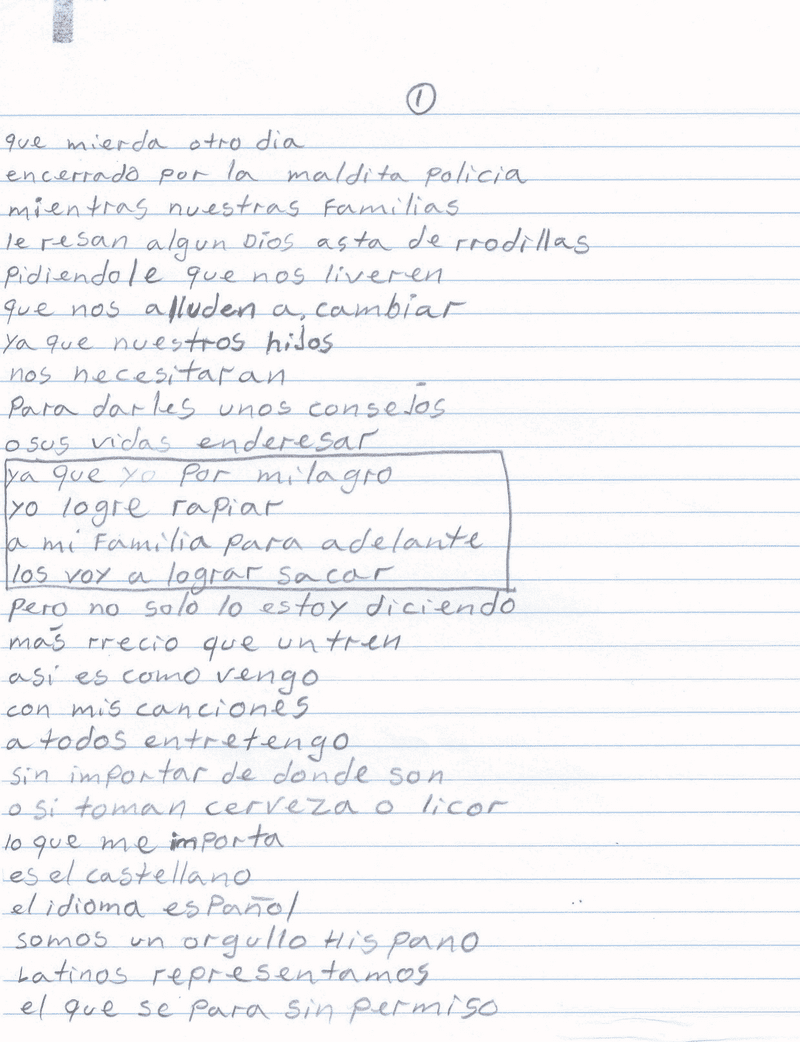 1
que mierda otro dia
encerrado por la maldita policia
mientras nuestras familias
le resan algun Dios asta de rrodillas
pidiendole que nos liveren
que nos alluden a, cambiar
ya que nuestros hijos
nos necesitaran
para darles unos consejos
o sus vidas enderesar
ya que yo por milagro
yo logre rapiar
a mi familia para adelante
los voy a lograr sacar
pero no solo lo estoy diciendo
mas rrecio que un tren
asi es como vengo
con mis canciones
a todos entretengo
sin importar de donde son
o si toman cerveza o licor
lo que me importa
es el castellano
el idioma español
somos un orgullo Hispano
Latinos representamos
el que se para sin permiso